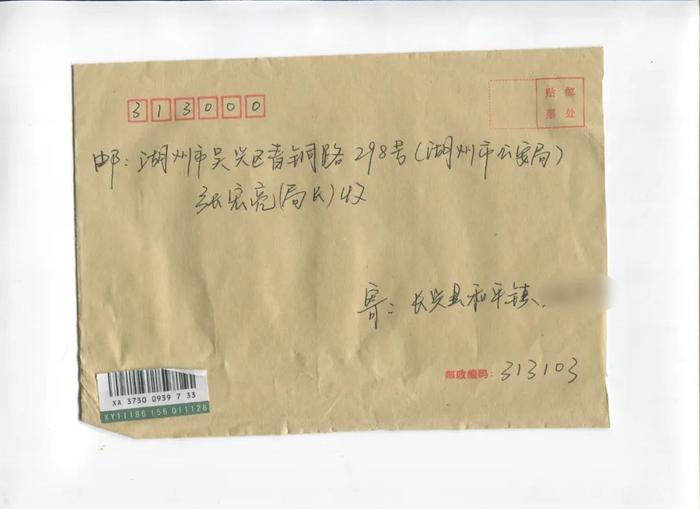 313000
贴邮
票处
邮：湖州市吴兴区青铜路298号（湖州市公安局）
张宏亮（局长）收
寄：长兴县和平镇
邮政编码：313103
XA 3730 0939 7 33
XY11186 156 011128